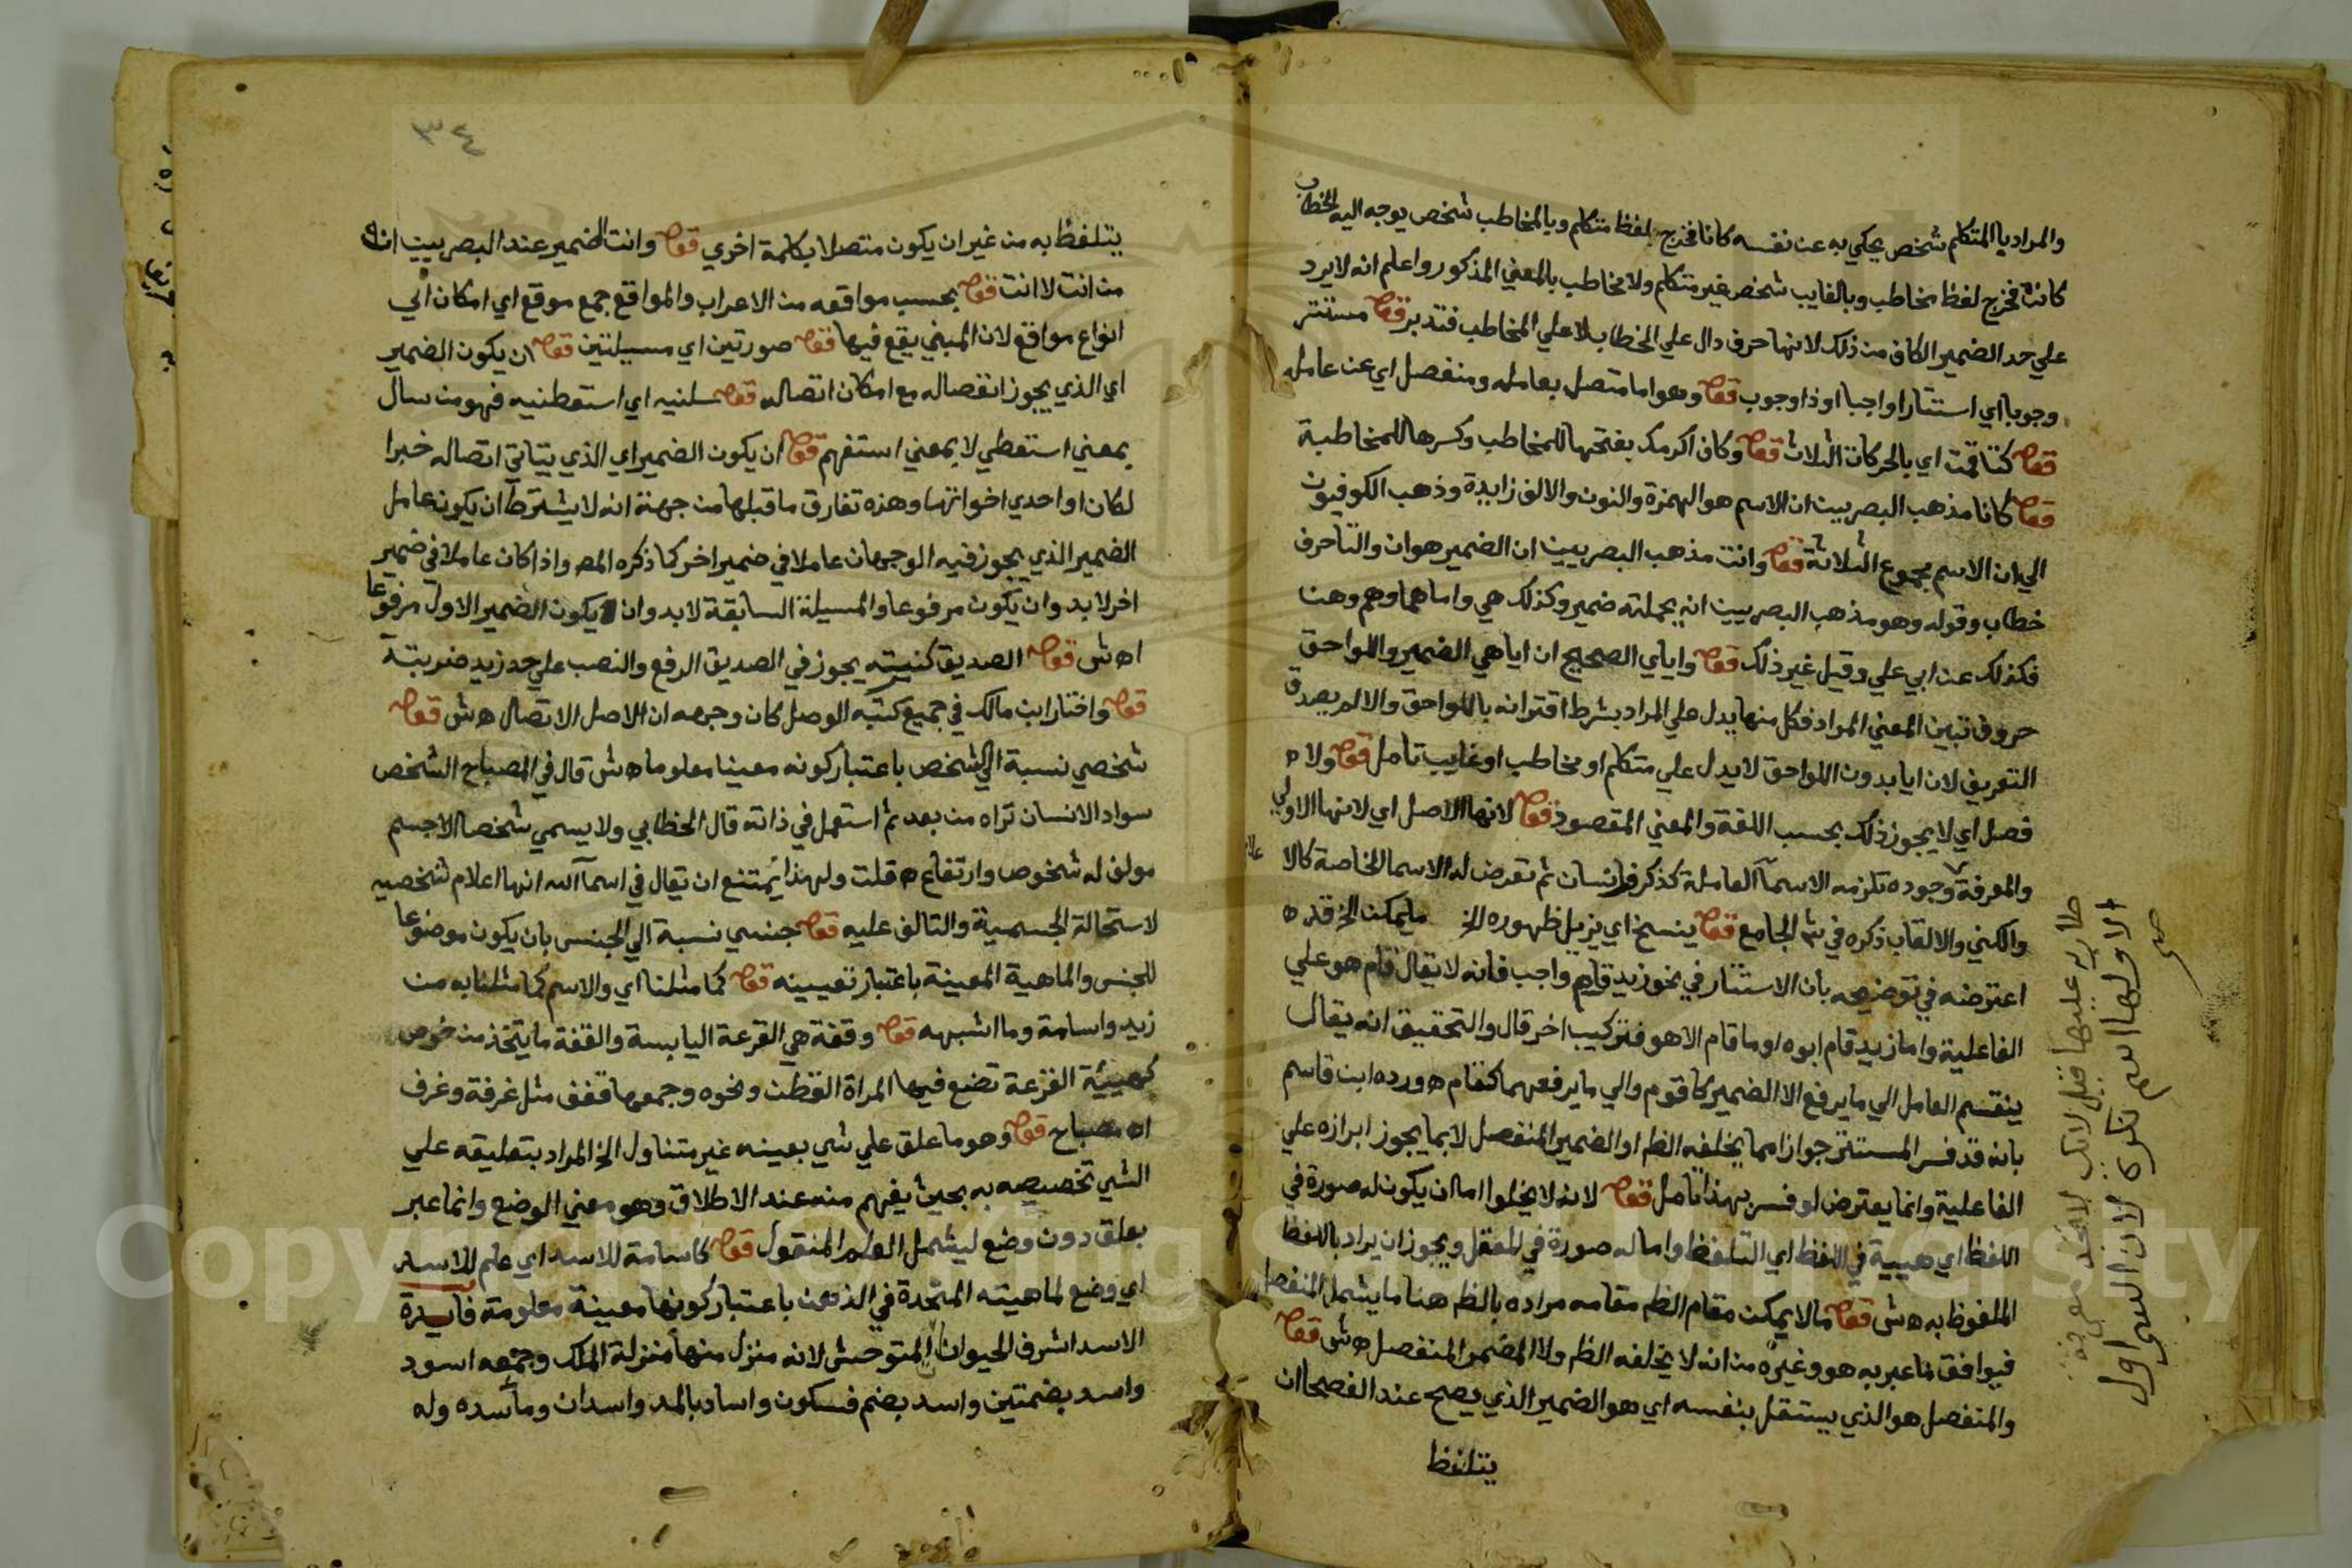 والمراد بالمتكلم شخص يحكي به عن نفسه كانا فخرج لفظ متكلم وبالمخاطب شخص يوجه اليه الخطاب
كانت فخرج لفظ مخاطب وبالغايب شخص غير متكلم ولا مخاطب بالمعني المذكور واعلم انه لا يرد
علي حد الضمير الكاف من ذلك لانها حرف دال علي الخطاب لا علي المخاطب فتدبر قوله مستتر
وجوبا اي استتارا واجبا او ذا وجوب قوله وهو اما متصل بعامله ومنفصل اي عن عامله
قوله كتا قمت اي بالحركات الثلاث قوله وكاف اكرمك بفتحها للمخاطب وكسرها للمخاطبة
قوله كانا مذهب البصريين ان الاسم هو الهمزة والنون والالف زايدة وذهب الكوفيون
الي ان الاسم مجموع الثلاثة قوله وانت مذهب البصريين ان الضمير هو ان والتا حرف
خطاب وقوله وهو مذهب البصريين انه بجملته ضمير وكذلك هي واما هما وهم وهن
فكذلك عن ابي علي وقيل غير ذلك قوله واياي الصحيح ان ايا هي الضمير واللواحق
حروف تبين المعني المراد فكل منها يدل علي المراد بشرط اقترانه باللواحق والا لم يصدق
التعريف لان ايا بدون اللواحق لا يدل علي متكلم او مخاطب او غايب تامل قوله ولا ه
فصل اي لا يجوز ذلك بحسب اللغة والمعني المقصود قوله لانها الاصل اي لانها الاولي
والمعرفة وجوده تلزمه الاسما العاملة كذكر وانسان ثم تعرض له الاسما الخاصة كالا علام
والكني والالقاب ذكره في ش الجامع قوله ينسخ اي يزيل ظهوره الخ ما يمكن الخ قد ه
اعترضه في توضيحه بان الاستتار في نحو زيد قام واجب فانه لا يقال قام هو علي
الفاعلية واما زيد قام ابوه او ما قام الا هو فتركيب اخر قال والتحقيق انه يقال
ينقسم العامل الي ما يرفع الا الضمير كاقوم والي ما يرفعهما كقام ه ورده ابن قاسم
بانه قد فسر المستتر جوازا بما يخلفه الظم او الضمير المنفصل لا بما يجوز ابرازه علي
الفاعلية وانما يعترض لو فسر بهذا تامل قوله لانه لا يخلوا اما ان يكون له صورة في
اللفظ اي هيية في اللفظ اي التلفظ واما له صورة في العقل ويجوز ان يراد باللفظ
الملفوظ به ه ش قوله ما لا يمكن مقام الظم مقامه مراده بالظم هنا ما يشمل المنفصل
فيوافق ما عبر به هو وغيره من انه لا يخلفه الظم ولا المضمر المنفصل ه ش قوله
والمنفصل هو الذي يستقل بنفسه اي هو الضمير الذي يصح عند الفصحا ان
يتلفظ
طاريه عليها قبل لانك لا تجد معرفة
الا ولها اسم نكرة لان الشي اول
صح
٣٤
يتلفظ به من غير ان يكون متصلا بكلمة اخري قوله وانت الضمير عند البصريين ان
من انت لا انت قوله بحسب مواقعه من الاعراب والمواقع جمع موقع اي امكان الي
انواع مواقع لان المبني يقع فيها قوله صورتين اي مسيلتين قوله ان يكون الضمير
اي الذي يجوز انفصاله مع امكان اتصاله قوله سلنيه اي استعطنيه فهو من سال
بمعني استعطي لا بمعني استفهم قوله ان يكون الضمير اي الذي يتاتي اتصاله خبرا
لكان او احدي اخواتها وهذه تفارق ما قبلها من جهة انه لا يشترط ان يكون عامل
الضمير الذي يجوز فيه الوجهان عاملا في ضمير اخر كما ذكره المص واذا كان عاملا في ضمير
اخر لا بد وان يكون مرفوعا والمسيلة السابقة لا بد وان لا يكون الضمير الاول مرفوعا
اه ش قوله الصديق كنيته يجوز في الصديق الرفع والنصب علي حد زيد ضربته
قوله واختار ابن مالك في جميع كتبه الوصل كان وجهه ان الاصل الاتصال ه ش قوله
شخصي نسبة الي الشخص باعتبار كونه معينا معلوما ه ش قال في المصباح الشخص
سواد الانسان تراه من بعد ثم استعمل في ذاته قال الخطابي ولا يسمي شخصا الا جسم
مولف له شخوص وارتفاع ه قلت ولهذا يمتنع ان يقال في اسما الله انها اعلام شخصيه
لاستحالة الجسمية والتالف عليه قوله جنسي نسبة الي الجنس بان يكون موضوعا
للجنس والماهية المعينة باعتبار تعيينه قوله كما مثلنا اي والاسم كما مثلنا به من
زيد واسامة وما اشبهه قوله وقفة هي القرعة اليابسة والقفة ما يتخذ من خوص
كهيئة القرعة تضع فيها المراة القطن ونحوه وجمعها قفف مثل غرفة وغرف
اه مصباح قوله وهو ما علق علي شي بعينه غير متناول الخ المراد بتعليقه علي
الشي تخصيصه به بحيث يفهم منه عند الاطلاق وهو معني الوضع وانما عبر
بعلق دون وضع ليشمل العلم المنقول قوله كاسامة للاسد اي علم للاسد
اي وضع لماهيته المتحدة في الذهن باعتبار كونها معينة معلومة فايدة
الاسد اشرف الحيوان المتوحش لانه منزل منها منزلة الملك وجمعه اسود
واسد بضمتين واسد بضم فسكون واساد بالمد واسدان وماسده وله
Copyright © King Saud University